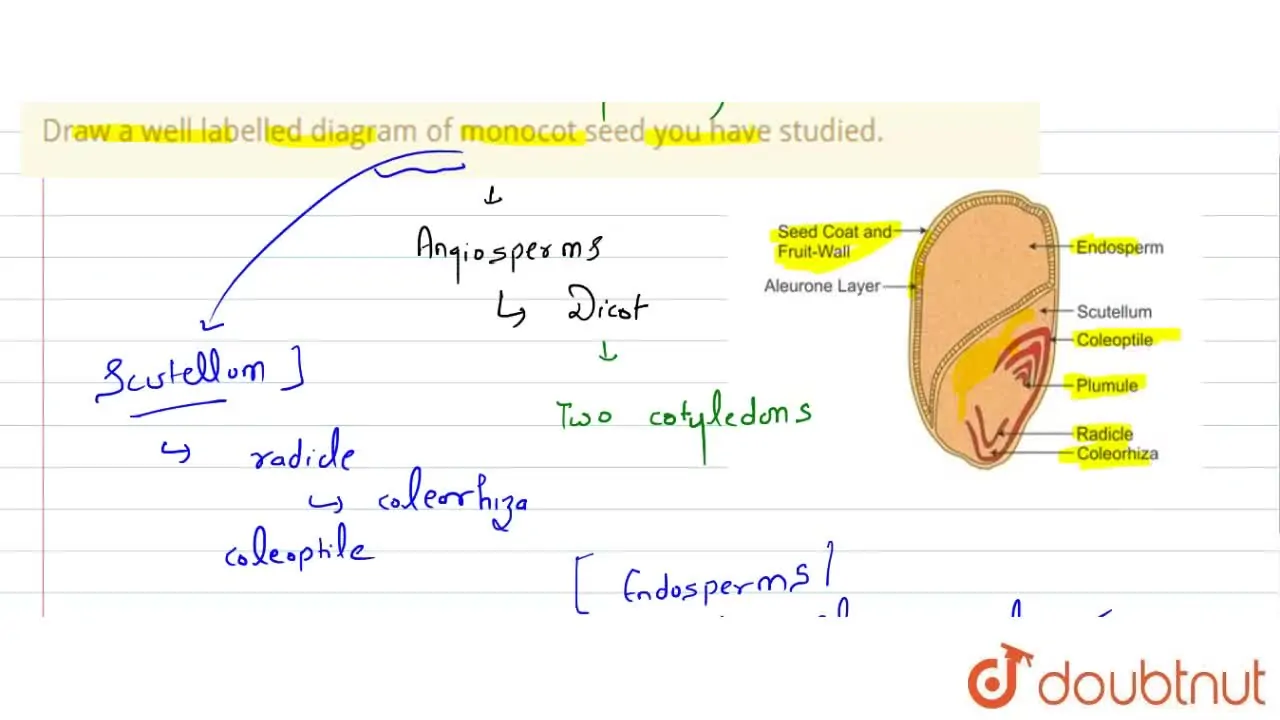 Draw a well labelled diagram of monocot seed you have studied.
Angiosperms
Dicot
Two cotyledons
Scutellum ]
radicle
coleorhiza
coleoptile
[ Endosperms ]
Seed Coat and
Fruit-Wall
Aleurone Layer
Endosperm
Scutellum
Coleoptile
Plumule
Radicle
Coleorhiza
doubtnut